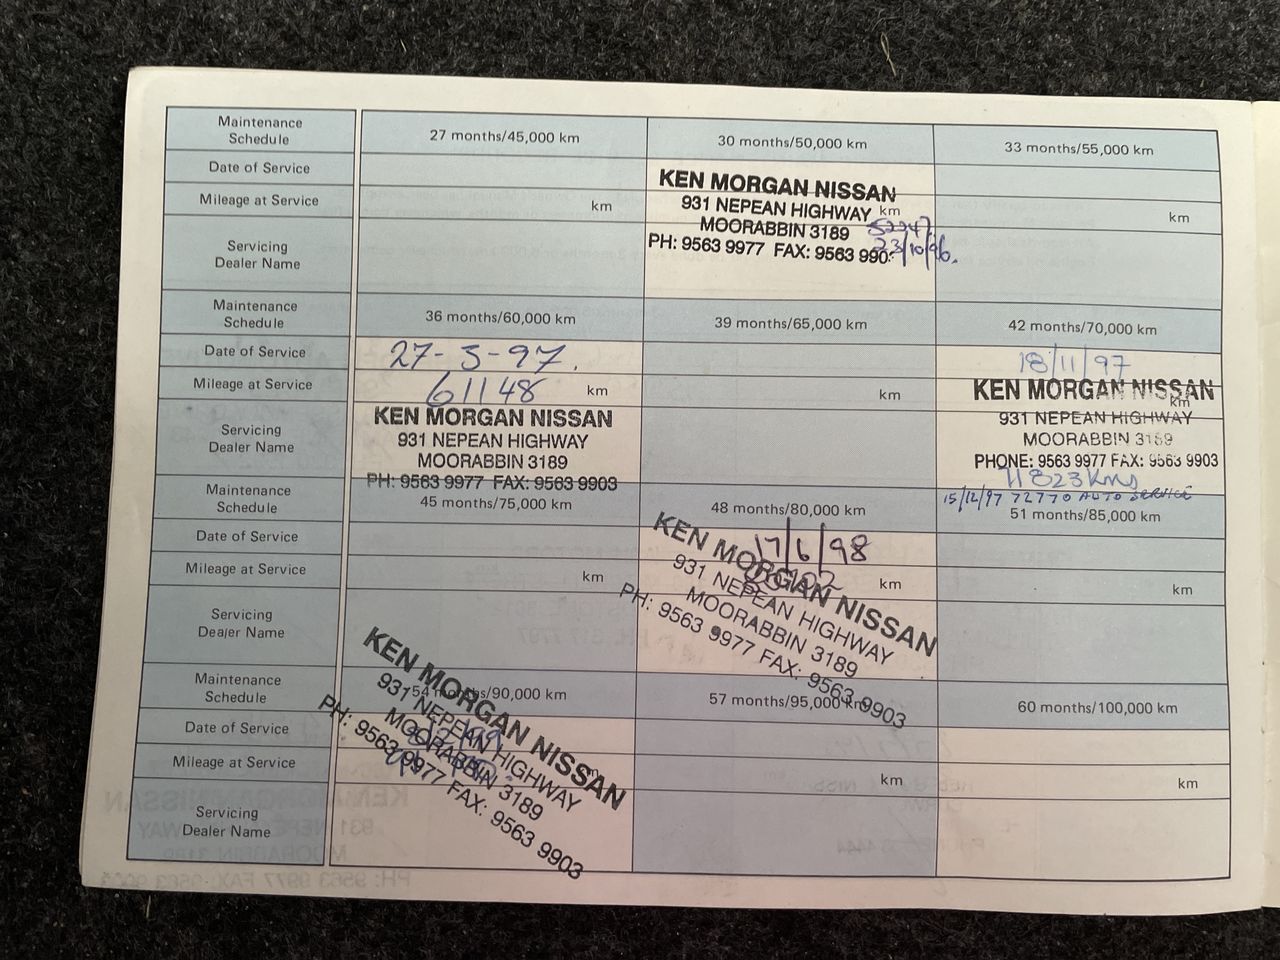 Maintenance
Schedule
27 months/45,000 km
30 months/50,000 km
33 months/55,000 km
Date of Service
Mileage at Service
km
km
km
Servicing
Dealer Name
KEN MORGAN NISSAN
931 NEPEAN HIGHWAY
MOORABBIN 3189
PH: 9563 9977 FAX: 9563 990
23/10/96.
Maintenance
Schedule
36 months/60,000 km
39 months/65,000 km
42 months/70,000 km
Date of Service
27-3-97.
18/11/97
Mileage at Service
61148 km
km
km
Servicing
Dealer Name
KEN MORGAN NISSAN
931 NEPEAN HIGHWAY
MOORABBIN 3189
PH: 9563 9977 FAX: 9563 9903
KEN MORGAN NISSAN
931 NEPEAN HIGHWAY
MOORABBIN 3189
PHONE: 9563 9977 FAX: 9563 9903
71823 kms
15/12/97 72770 AUTO SERVICE
Maintenance
Schedule
45 months/75,000 km
48 months/80,000 km
51 months/85,000 km
Date of Service
17/6/98
Mileage at Service
km
km
km
Servicing
Dealer Name
KEN MORGAN NISSAN
931 NEPEAN HIGHWAY
MOORABBIN 3189
PH: 9563 9977 FAX: 9563 9903
Maintenance
Schedule
54 months/90,000 km
57 months/95,000 km
60 months/100,000 km
Date of Service
Mileage at Service
km
km
Servicing
Dealer Name
KEN MORGAN NISSAN
931 NEPEAN HIGHWAY
MOORABBIN 3189
PH: 9563 9977 FAX: 9563 9903